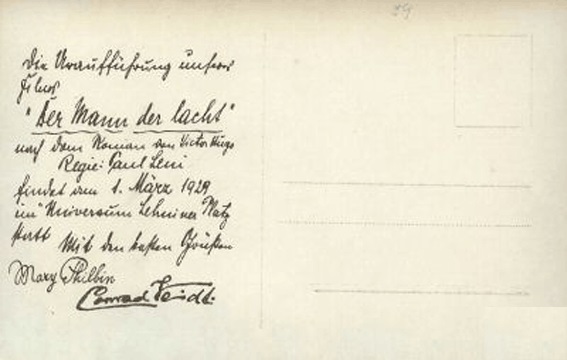 Die Uraufführung unseres
Films
"Der Mann der lacht"
nach dem Roman von Victor Hugo
Regie: Paul Leni
findet am 1. März 1929
im Universum Lehniner Platz
statt Mit den besten Grüßen
Mary Philbin
Conrad Veidt.
39